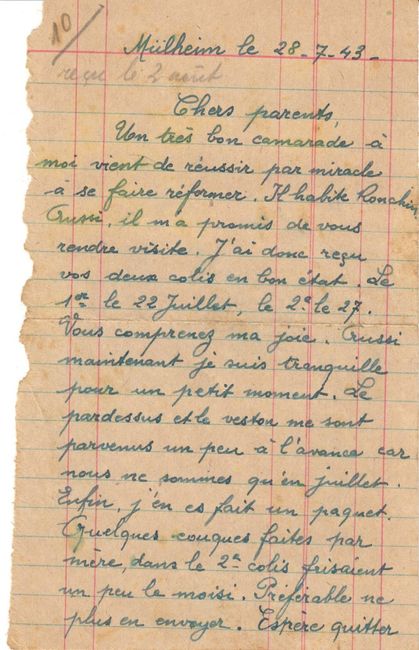 10/
Mülheim le 28-7-43-
reçu le 2 août
Chers parents,
Un très bon camarade à
moi vient de réussir par miracle
à se faire réformer. Il habite Ronchin
Aussi, il m'a promis de vous
rendre visite. J'ai donc reçu
vos deux colis en bon état. Le
1er le 22 Juillet, le 2e le 27.
Vous comprenez ma joie. Aussi
maintenant je suis tranquille
pour un petit moment. Le
pardessus et le veston me sont
parvenus un peu à l'avance car
nous ne sommes qu'en juillet.
Enfin, j'en es fait un paquet.
Quelques couques faites par
mère, dans le 2e colis frisaient
un peu le moisi. Préférable ne
plus en envoyer. Espère quitter